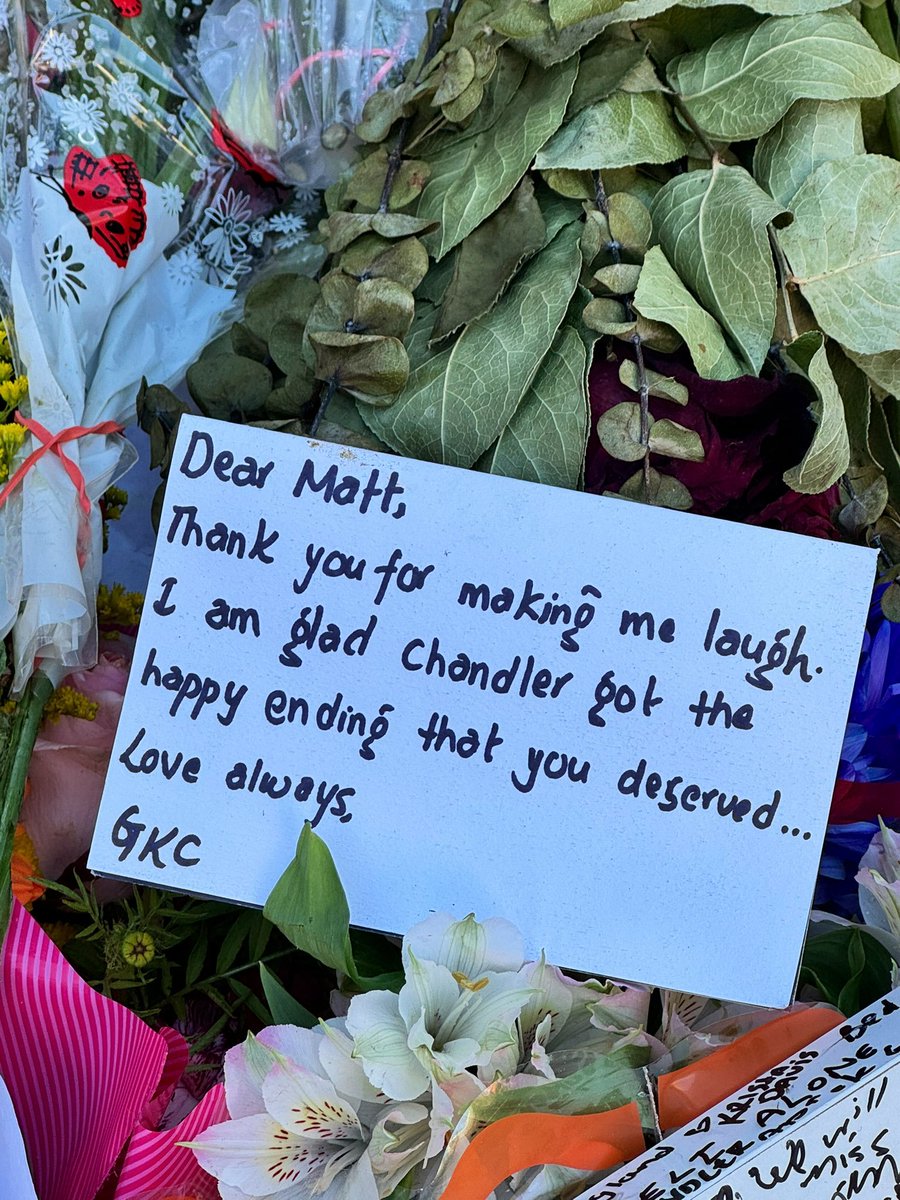 Dear Matt,
Thank you for making me laugh.
I am glad Chandler got the
happy ending that you deserved...
Love always,
GKC
ALONE
will
miss